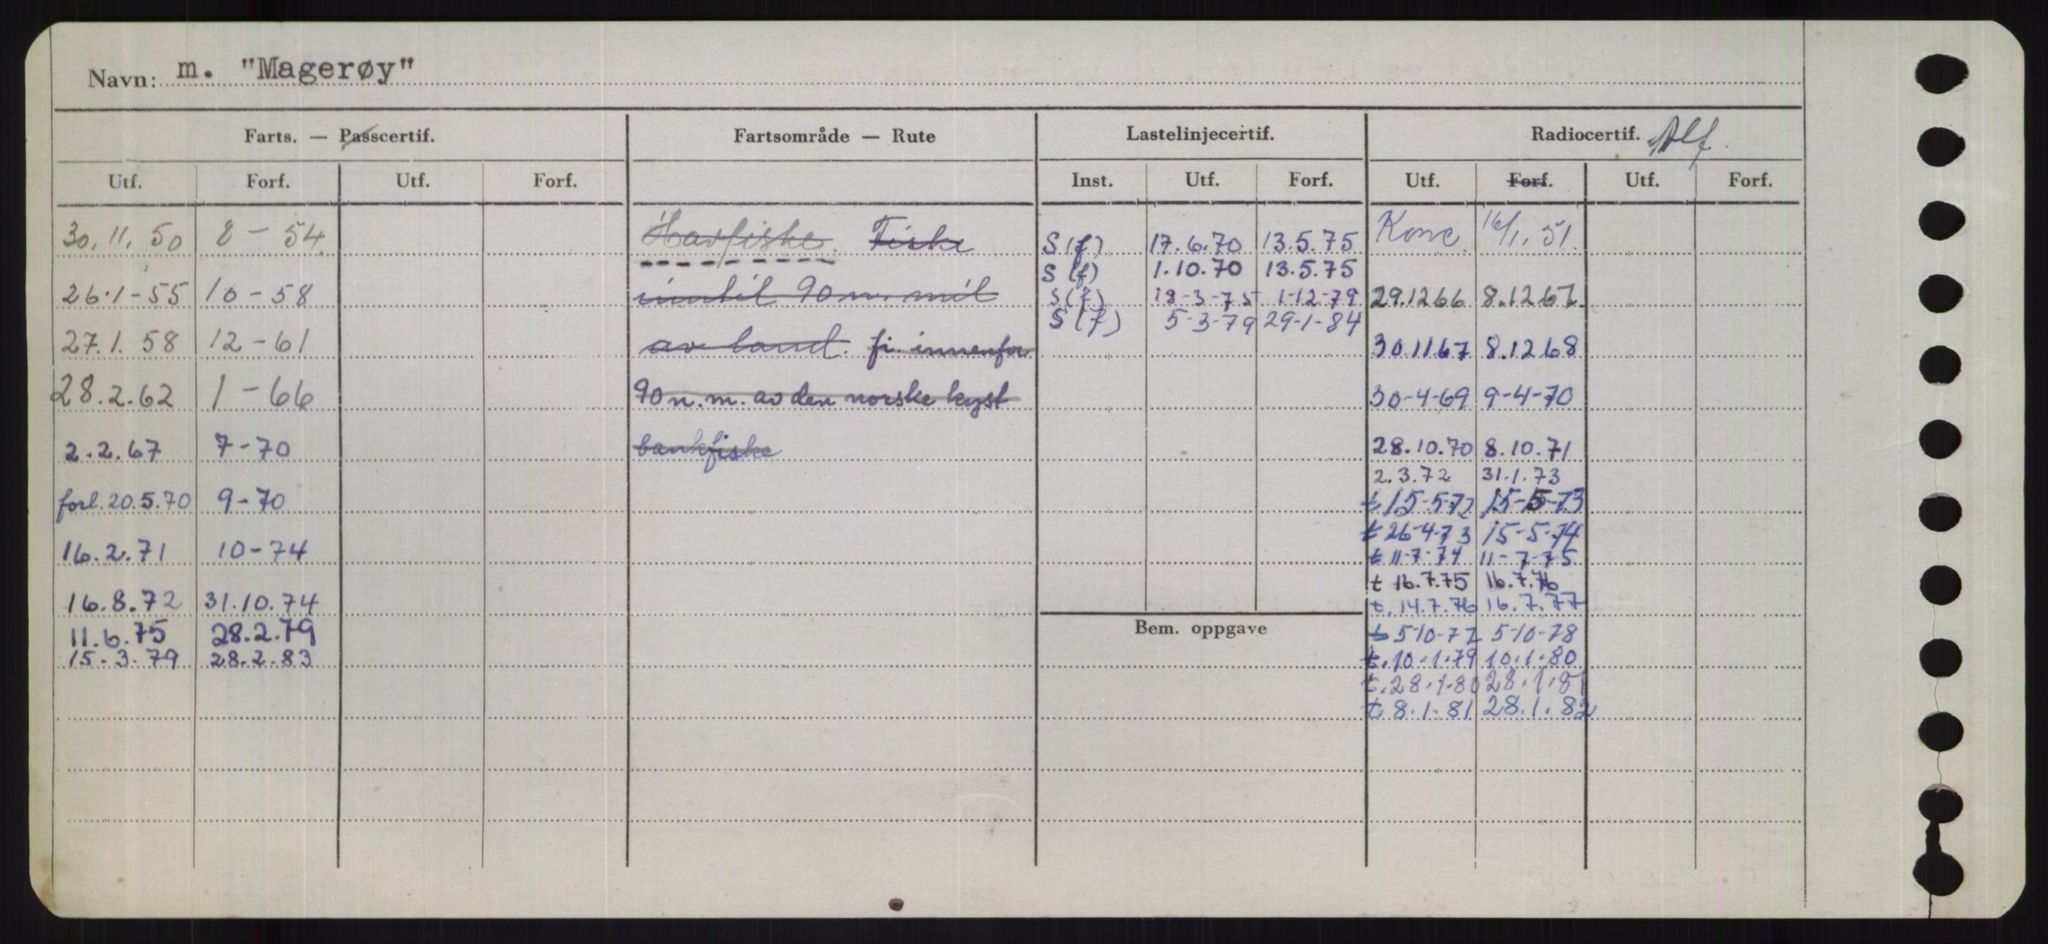 Navn: m. "Magerøy"
Farts. — Passcertif. Fartsområde — Rute Lastelinjecertif. Radiocertif. Alf.
Utf. Forf. Utf. Forf. Inst. Utf. Forf. Utf. Forf. Utf. Forf.
30.11.50 8 - 54 Havfiske. Fiske S(f) 17.6.70 13.5.75 16/1.51
S(f) 1.10.70 13.5.75
26.1-55 10-58 inntil 90 n. mil S(f) 18-3-75 1-12-79 29.12.66 8.12.67
S(f) 5-3-79 29-1-84
27.1.58 12-61 av land. fi. innenfor 30.11.67 8.12.68
28.2.62 1-66 90 n.m. av den norske kyst 30-4-69 9-4-70
2.2.67 7-70 bankfiske 28.10.70 8.10.71
2.3.72 31.1.73
forl. 20.5.70 9-70 t 15-5-72 15-5-73
t 26-4-73 15-5-74
16.2.71 10-74 t 11-7-74 11-7-75
t 16.7.75 16.7.76
16.8.72 31.10.74 t. 14.7.76 16.7.77
Bem. oppgave
11.6.75 28.2.79 t 5-10-77 5-10-78
15-3-79 28.2.83 t. 10.1.79 10.1.80
t. 28.1.80 28.1.81
t 8.1.81 28.1.82